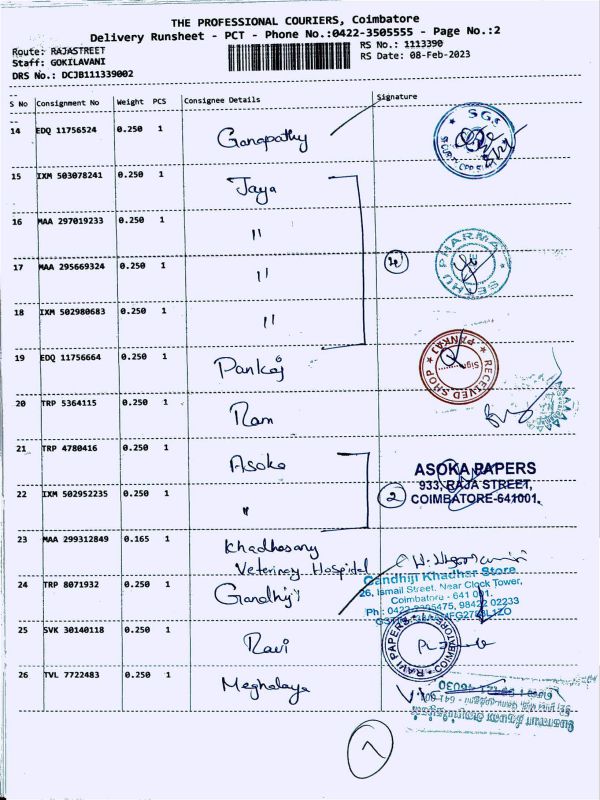 THE PROFESSIONAL COURIERS, Coimbatore
Delivery Runsheet - PCT - Phone No.:0422-3505555 - Page No.:2
Route: RAJASTREET
RS No.: 1113390
Staff: GOKILAVANI
RS Date: 08-Feb-2023
DRS No.: DCJB111339002
S No Consignment No Weight PCS Consignee Details Signature
14 EDQ 11756524 0.250 1 Ganapathy
SGS
15 IXM 503078241 0.250 1 Jaya
16 MAA 297019233 0.250 1 "
17 MAA 295669324 0.250 1 " 4
SETHU PHARMA
18 IXM 502980683 0.250 1 "
19 EDQ 11756664 0.250 1 Pankaj
PANKAJ RECEIVED SHOP
Sign
20 TRP 5364115 0.250 1 Ram
21 TRP 4780416 0.250 1 Asoka
ASOKA PAPERS
933, RAJA STREET,
22 IXM 502952235 0.250 1 " 2
COIMBATORE-641001.
23 MAA 299312849 0.165 1 Khadhosany
Veterinary Hospital
24 TRP 8071932 0.250 1 Gandhiji
Gandhiji Khadhar Store.
26, Ismail Street, Near Clock Tower,
Coimbatore - 641 001.
Ph : 0422 2395475, 98422 02233
25 SVK 30140118 0.250 1 Ravi
RAVI PAPERS COIMBATORE
26 TVL 7722483 0.250 1 Meghalaya